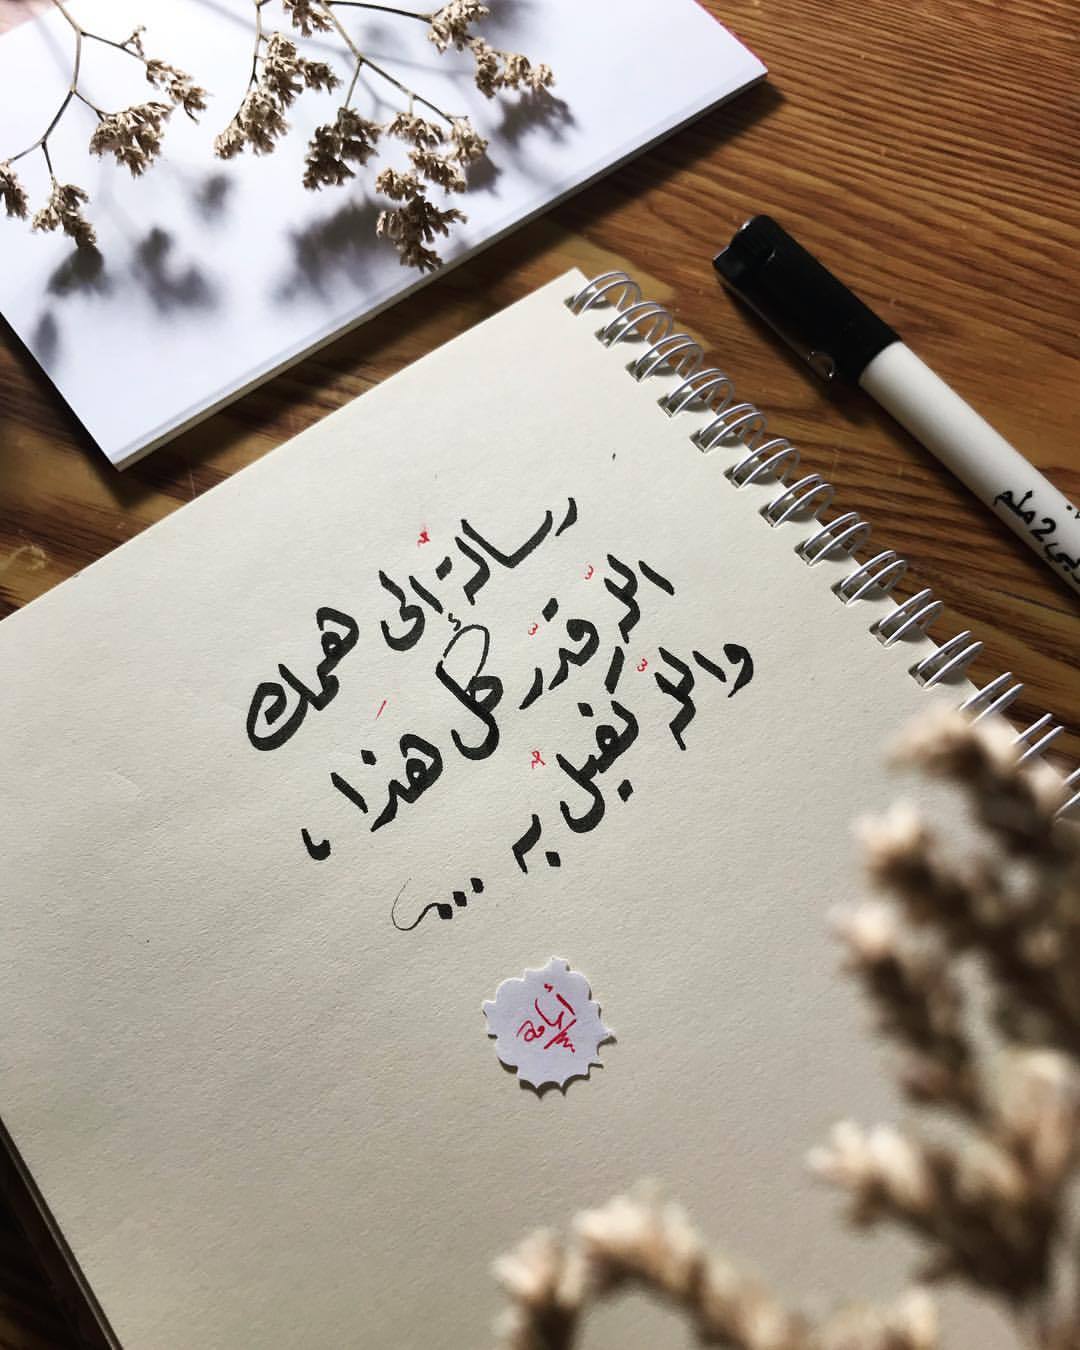 رسالة الى همك
الله قدر كل هذا ،
والله كفيل به ...
2 ملم